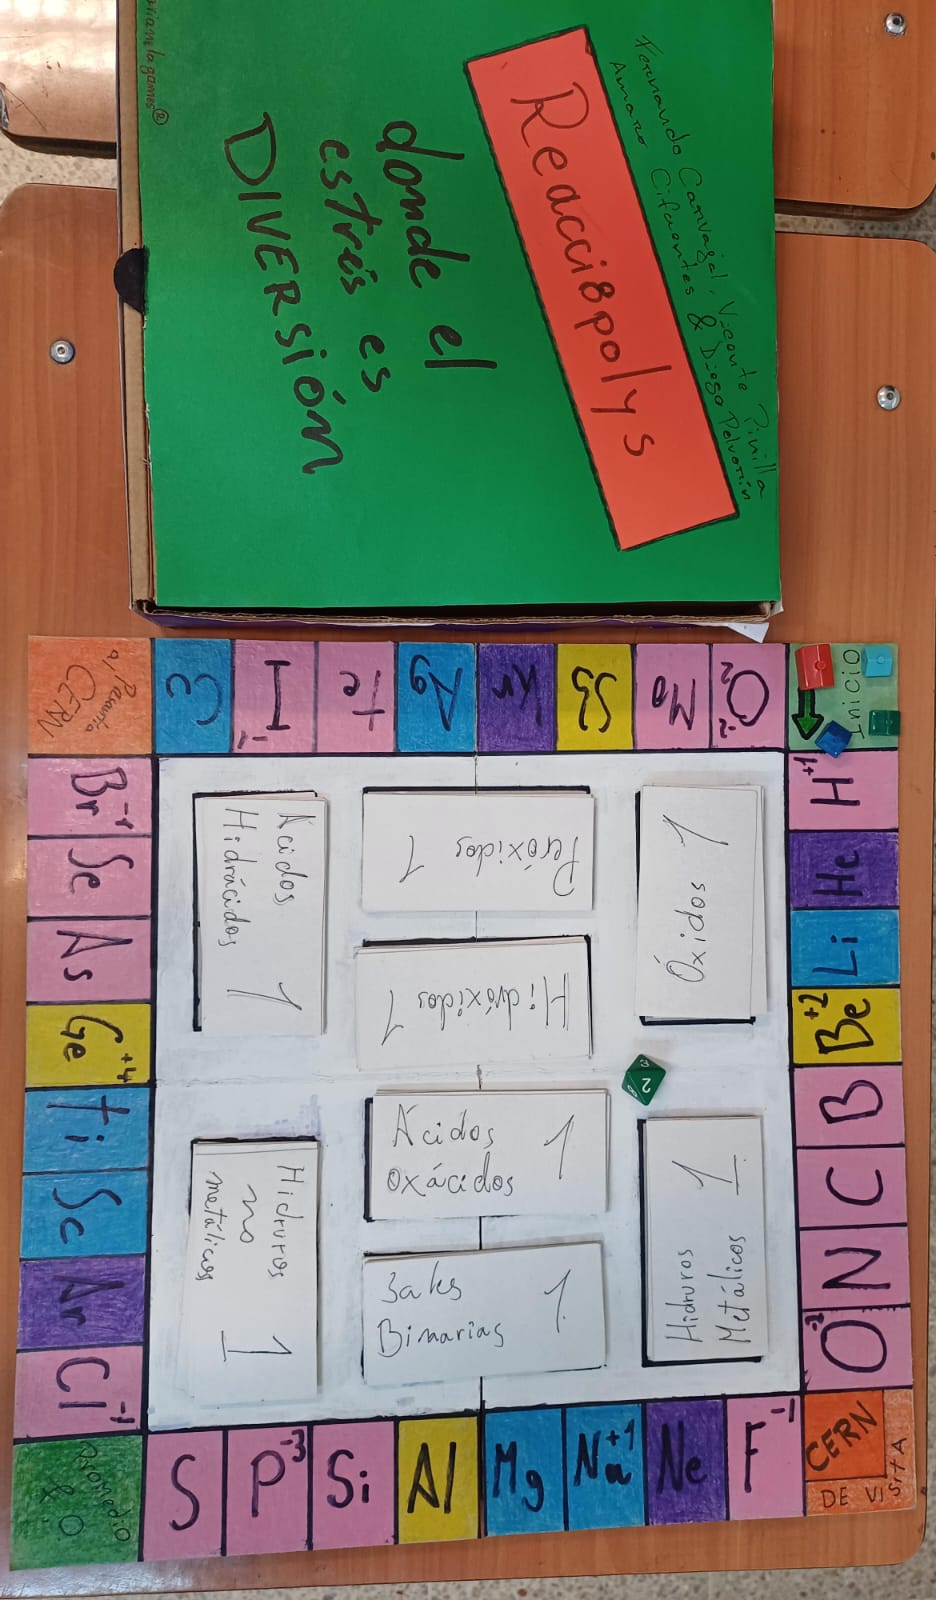 Reacci8polys
donde el
estrés es
DIVERSIÓN
Fernando Carvajal, Vicente Pinilla
Amaro Cifuentes & Diego
arianlagames®
INICIO
H+1
He
Li
Be+2
B
C
N
O-2
CERN
DE VISITA
F-1
Ne
Na+1
Mg
Al
Si
P-3
S
PROMEDIO
Cl-1
Ar
Sc
Ti
Ge+4
As
Se
Br-1
CERN
I-1
Te
Ag
Kr
Sb
Mo
Óxidos 1
Peróxidos 1
Hidróxidos 1
Ácidos
Hidrácidos 1
Ácidos
oxácidos 1
Sales
Binarias 1
Hidruros
Metálicos 1
Hidruros
no
metálicos 1
2